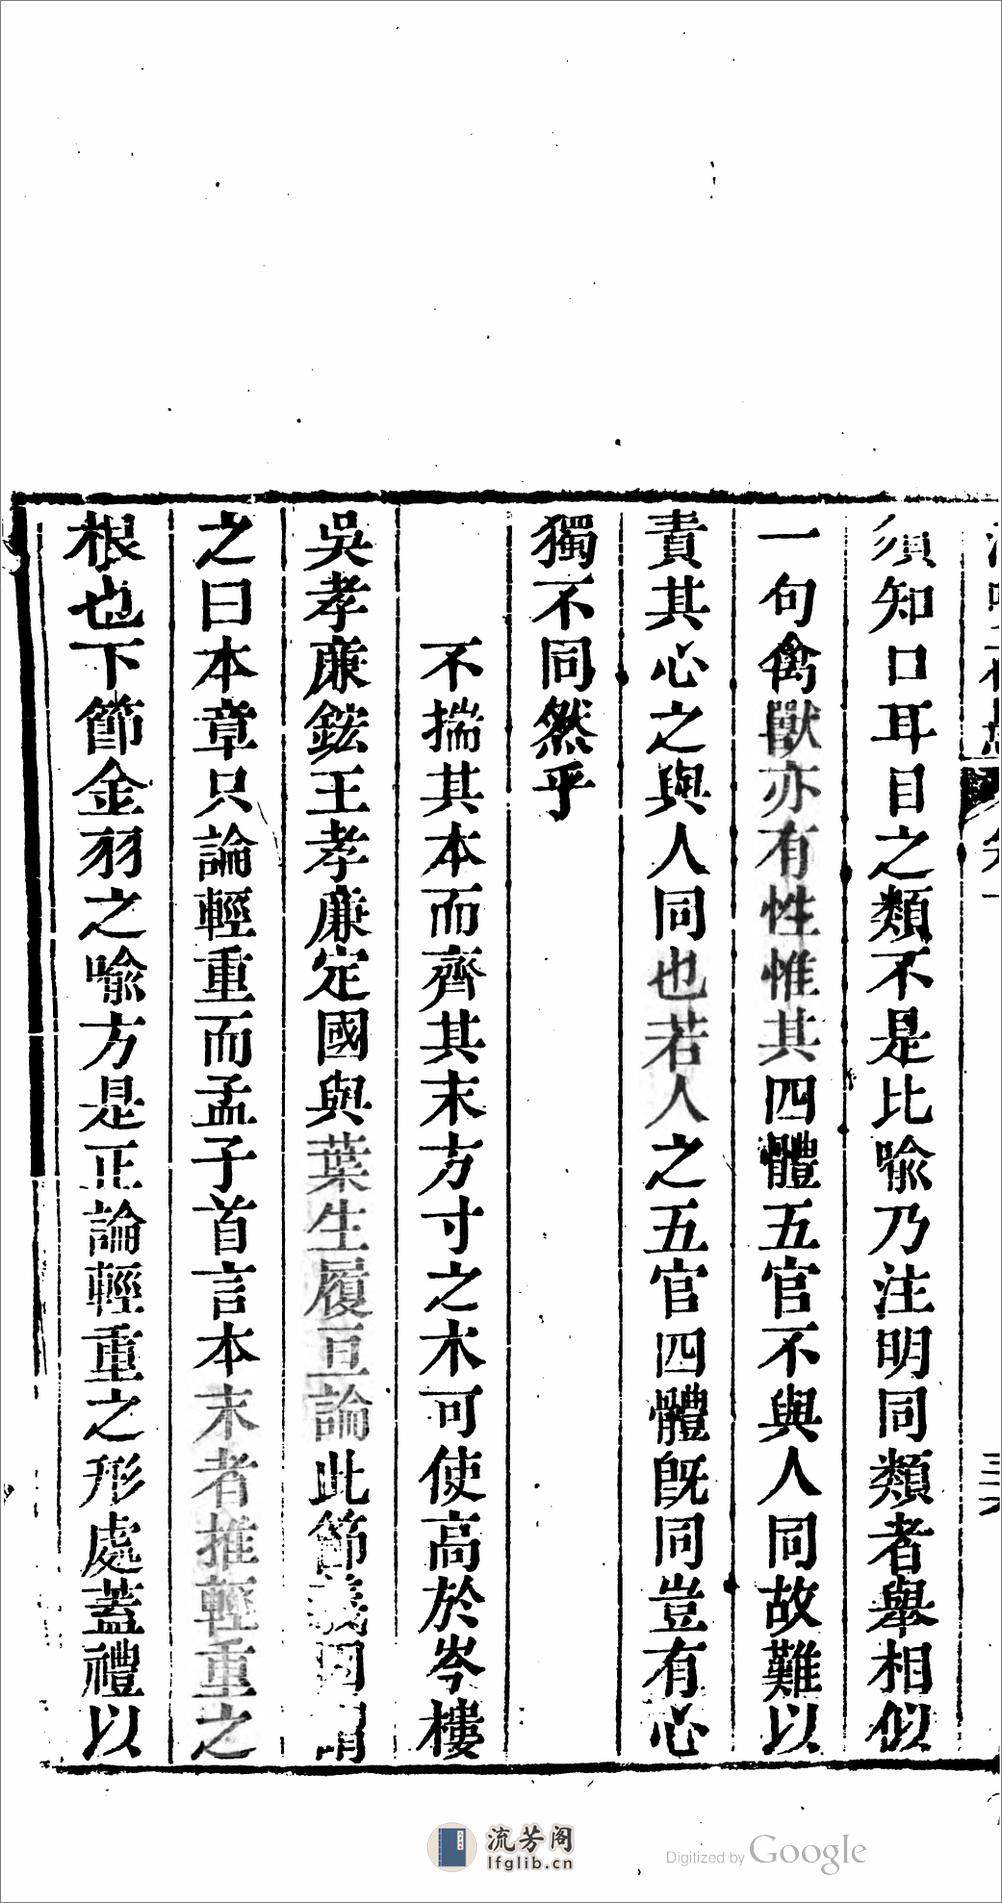 須知口耳目之類不是比喻乃注明同類者舉相似
一句禽獸亦有性惟其四體五官不與人同故難以
責其心之與人同也若人之五官四體既同豈有心
獨不同然乎
不揣其本而齊其末方寸之木可使高於岑樓
吳孝廉鋐王孝廉定國與葉生履亘論此節義因謂
之曰本章只論輕重而孟子首言本末者推輕重之
根也下節金羽之喻方是正論輕重之形處蓋禮以
流芳阁
lfglib.cn
Digitized by Google